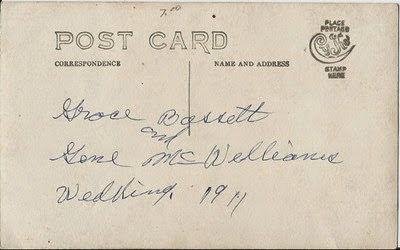 7.00
POST CARD
PLACE
POSTAGE
STAMP
HERE
CORRESPONDENCE
NAME AND ADDRESS
Grace Bassett
and
Gene McWelliams
Wedding, 1911